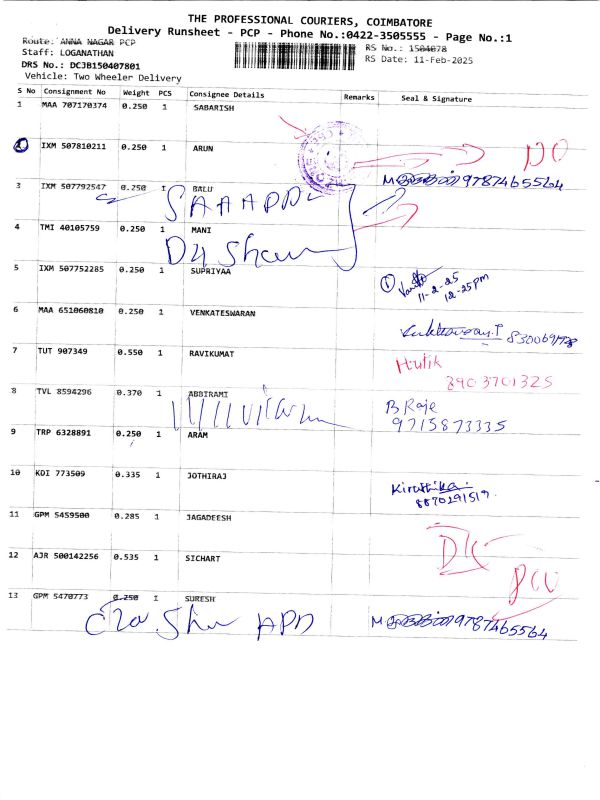 THE PROFESSIONAL COURIERS, COIMBATORE
Delivery Runsheet - PCP - Phone No.:0422-3505555 - Page No.:1
Route: ANNA NAGAR PCP
Staff: LOGANATHAN
DRS No.: DCJB150407801
Vehicle: Two Wheeler Delivery
RS No.: 1504078
RS Date: 11-Feb-2025
S No Consignment No Weight PCS Consignee Details Remarks Seal & Signature
1 MAA 707170374 0.250 1 SABARISH
2 IXM 507810211 0.250 1 ARUN
DO
9787465564
3 IXM 507792547 0.250 1 BALU
4 TMI 40105759 0.250 1 MANI
5 IXM 507752285 0.250 1 SUPRIYAA
1
11-2-25
12-25pm
6 MAA 651060810 0.250 1 VENKATESWARAN
7 TUT 907349 0.550 1 RAVIKUMAT
Hutik
8903701325
8 TVL 8594296 0.370 1 ABBIRAMI
B Raje
9715873335
9 TRP 6328891 0.250 1 ARAM
10 KDI 773509 0.335 1 JOTHIRAJ
Kiruthika
8870291519
11 GPM 5459500 0.285 1 JAGADEESH
12 AJR 500142256 0.535 1 SICHART
13 GPM 5470773 0.250 1 SURESH
9787465564